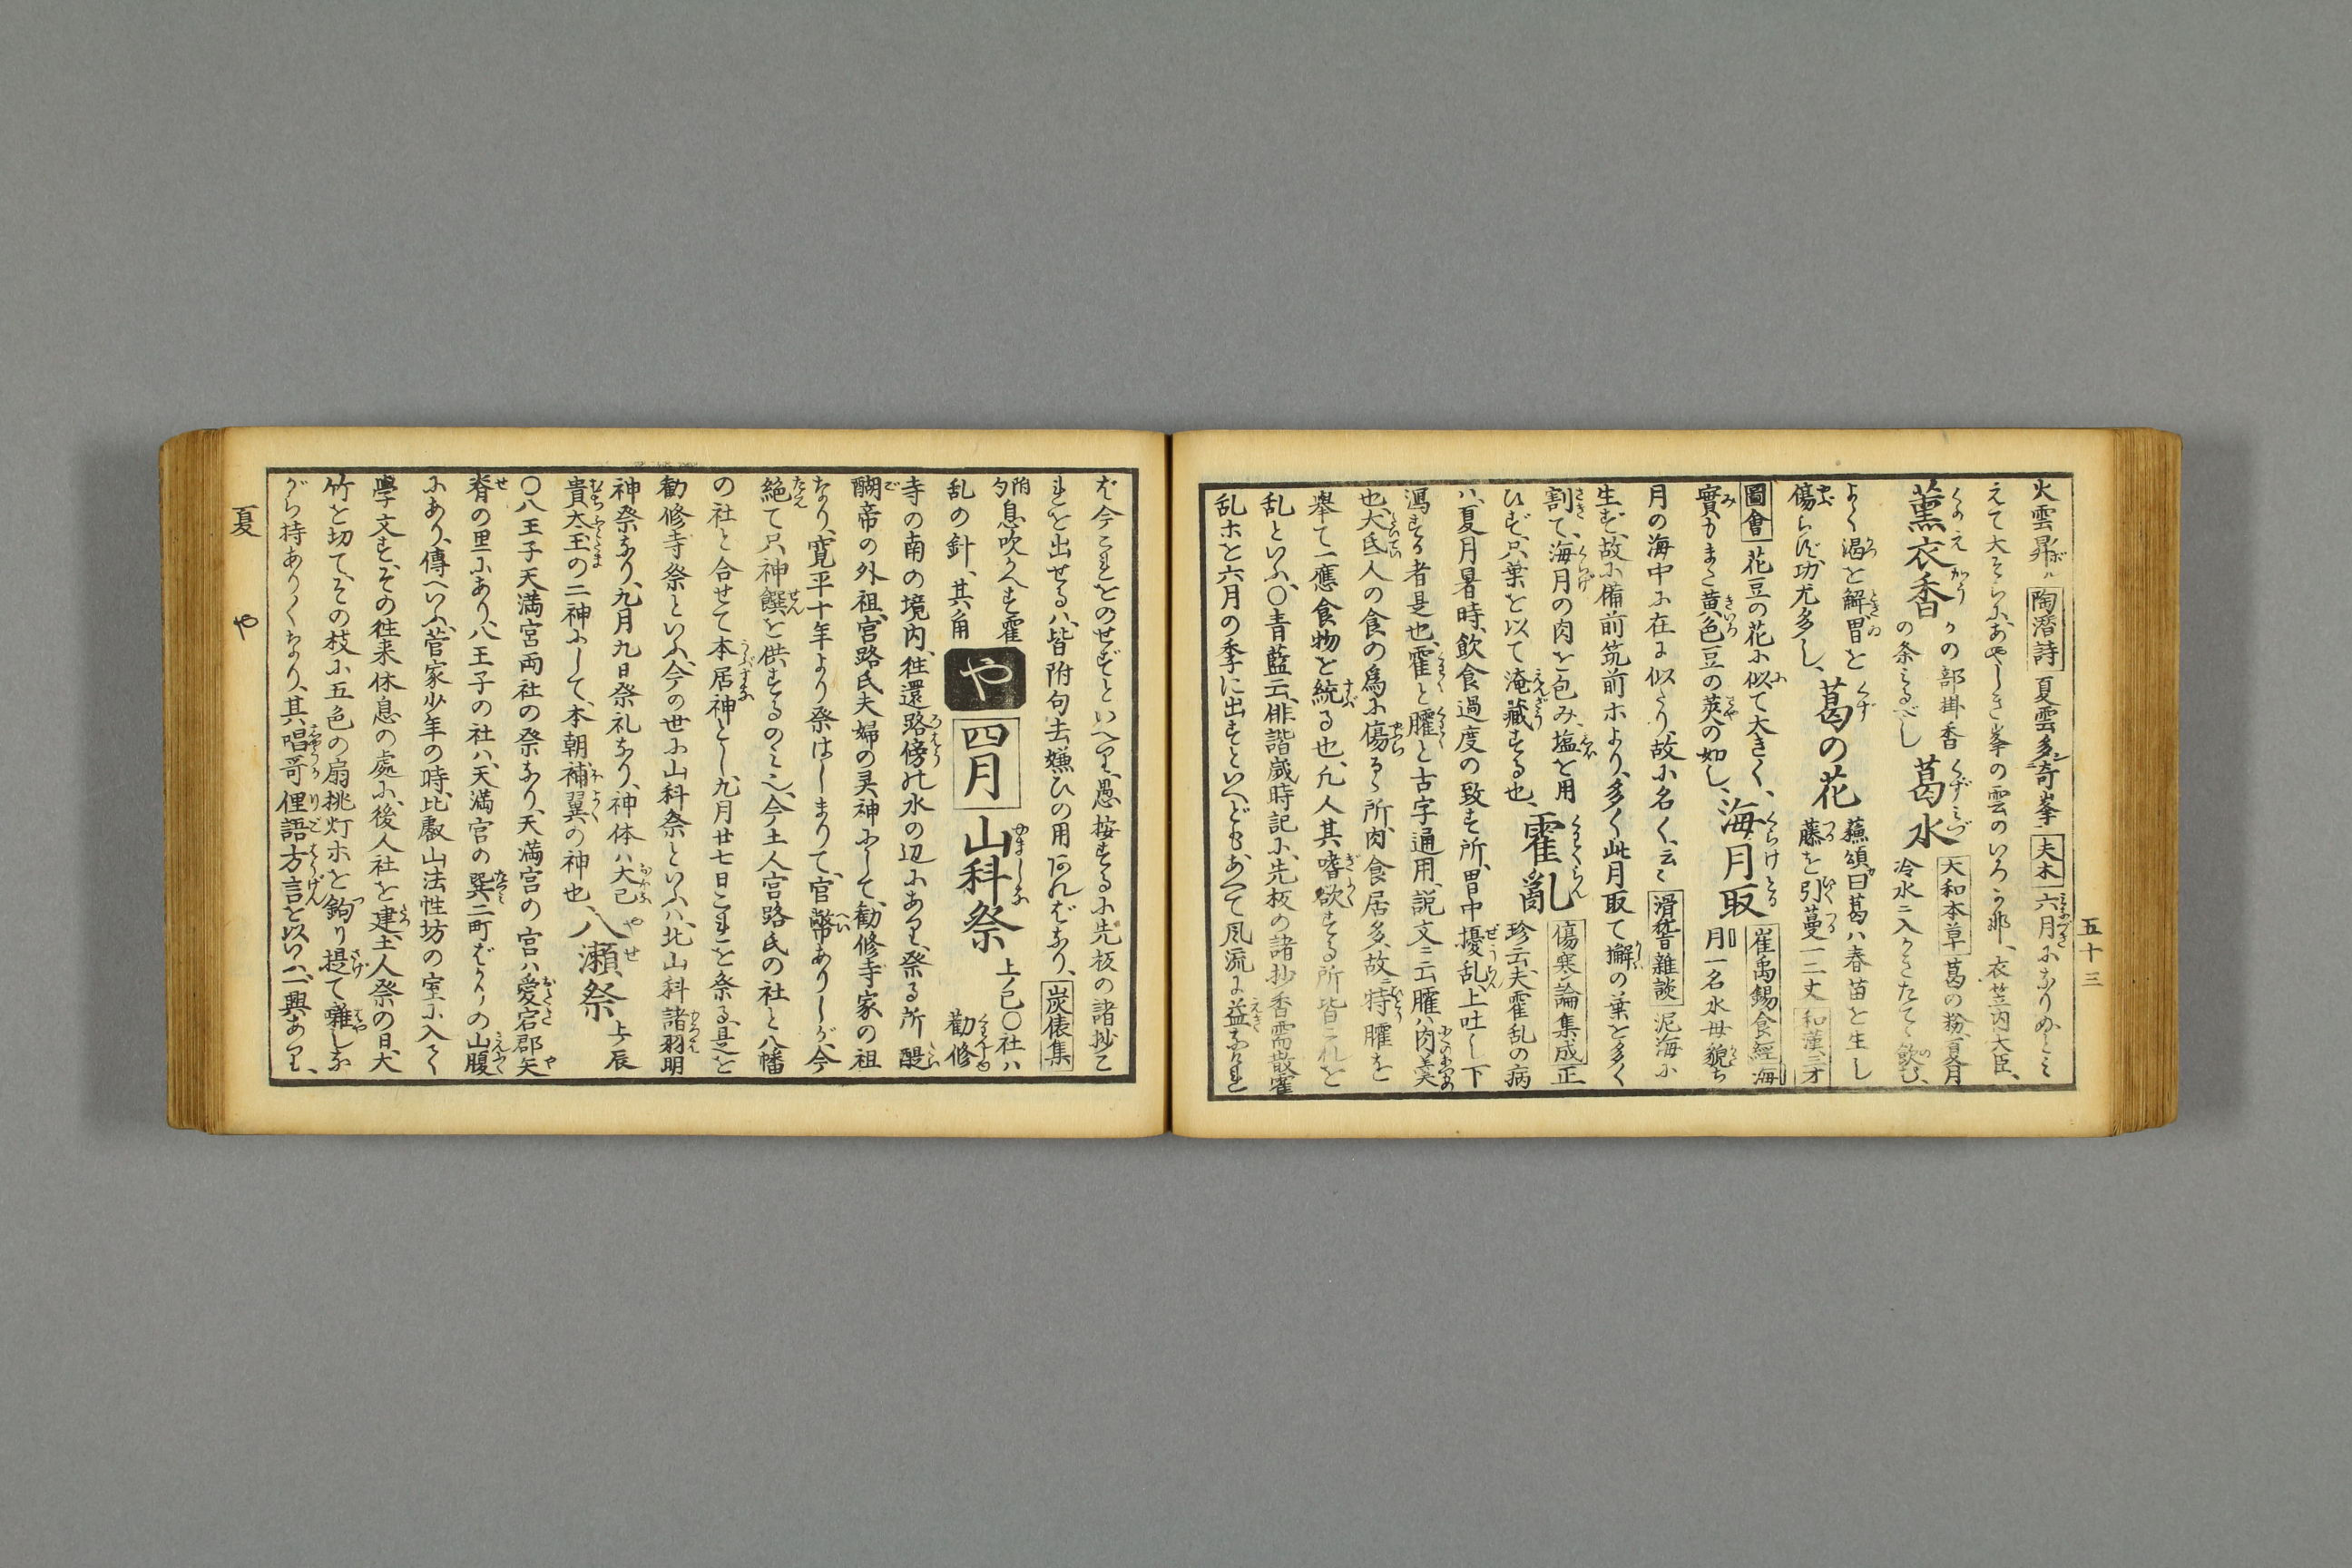 五十三
火雲昇ル 陶潜詩 夏雲多奇峯 夫木 六月になりぬとみ
えて大そらにあやしき峯の雲のいろか那、衣笠内大臣、
薫衣香 かの部掛香の条みるべし 葛水 大和本草 葛の粉、夏月冷水ニ入かきたてゝ飲む、
よく渇を解胃を傷らず功尤多し、 葛の花 蘓頌曰葛ハ春苗を生し藤を引蔓一二丈 和漢三才
圖會 花豆の花に似て大きく、
實かまた黄色豆の莢の如し、 海月取 崔禹錫食經 海月一名水母貌ち
月の海中に在に似たり、故に名く、云〻 滑稽雜談 泥海に
生ず、故に備前筑前ホより、多く此月取て檞の葉を多く
割て、海月の肉を包み、塩を用
ひず、只葉を以て淹藏する也、 霍亂 傷寒論集成 正珍云、夫霍乱の病
ハ、夏月暑時、飲食過度の致す所、胃中擾乱、上吐し下
瀉する者是也、霍と臛と古字通用、説文ニ云臛ハ肉羹
也、大氐人の食の為に傷るゝ所、肉食居多、故ニ特臛を
舉て一應食物を統る也、凡人其嗜欲する所皆これを
乱といふ、〇青藍云、俳諧歳時記に、先板の諸抄香需散霍
乱ホを六月の季に出すといへども、あへて風流に益なけれ
ば今これをのせずといへり、愚按するに先板の諸抄こ
れを出せるハ、皆附句去嫌ひの用なればなり、 炭俵集
附句 息吹かへす霍
乱の針、其角 や 四月 山科祭 上ノ巳〇社ハ勧修
寺の南の境内、往還路傍北水の辺にあり、祭る所醍
醐帝の外祖、宮路氏夫婦の灵神にして、勧修寺家の祖
なり、寛平十年より祭はしまりて、官幣ありしが、今
絶て只神饌を供するのミ也、今土人宮路氏の社と八幡
の社と合せて本居神とし、九月廿七日これを祭る、是を
勧修寺祭といふ、今の世に山科祭といふハ、北山科諸羽明
神祭なり、九月九日祭礼なり、神体ハ大己
貴太玉の二神にして、本朝補翼の神也、 八瀬祭 上ノ辰
〇八王子天満宮両社の祭なり、天満宮の宮ハ愛宕郡矢
脊の里にあり、八王子の社ハ、天満宮の巽二町ばかりの山腹
にあり、傳へいふ、菅家少年の時、比叡山法性坊の室に入て
學文す、その往来休息の處に、後人社を建、土人祭の日、大
竹を切て、その枝に五色の扇挑灯ホを鉤り提て囃しな
がら持ありくなり、其唱哥俚語方言を以いハヾ、一興あり、
夏 や